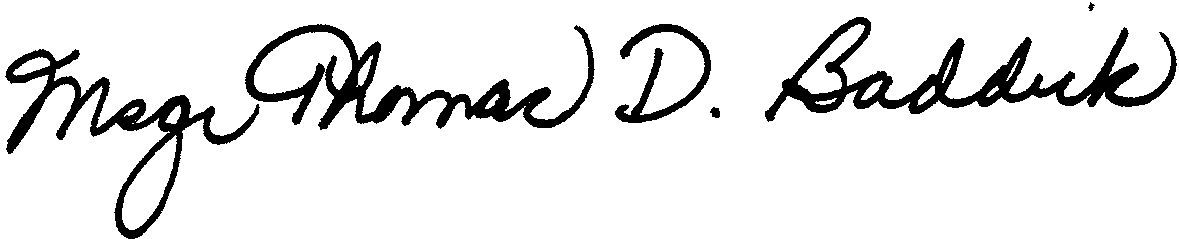 Msgr Thomas D. Baddick